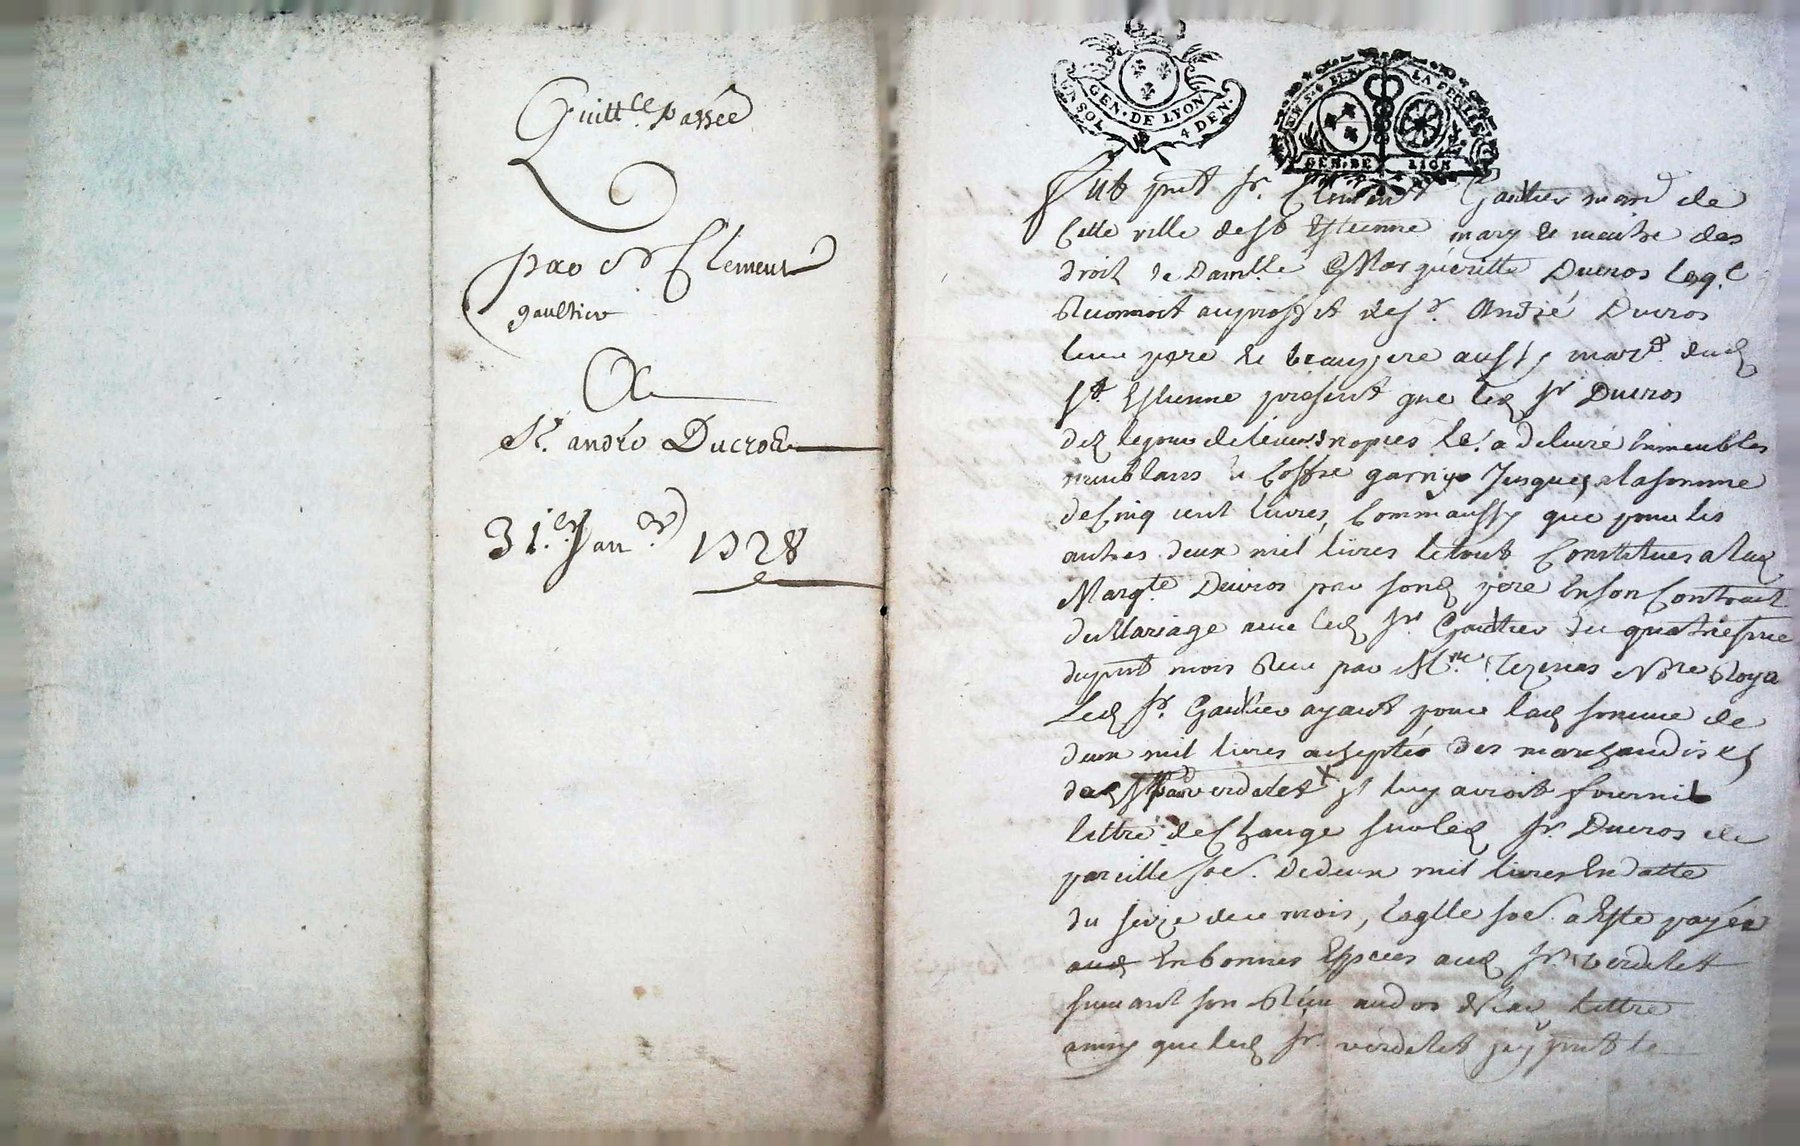 Quitt.ce passée
par Sr Clement
gaultier
A
Sr. andré Ducros
31.e Janer 1728
GEN. DE LYON
UN SOL 4 DEN.
GEN. DE LION
Fut pnt Sr. Clement Gaultier mard de
Cette ville de St Estienne mary et maitre des
droit de damlle Marguéritte Ducros leql
Reconnoit au proffit de Sr. André Ducros
leur pere et beaupere aussy mard dud
St. Estienne present que led Sr Ducros
dez le jour de leurs nopces le. a delivré en meubles
meublans et Coffre garny Jusques a la somme
de Cinq cent livres, Comm aussy que pour les
autres deux mil livres le tout Constitues a lad
Margte. Ducros par sond pere en son Contract
de Mariage avec led Sr. Gaultier du quatriesme
du pnt mois Receu par Me. Nore Royal
Led Sr. Gaultier ayant pour lad somme de
deux mil livres acheptéo des marchandises
Verdelet x Il luy auroit fournit
lettre de Change sur led Sr. Ducros de
pareille soe. de deux mil livres En datte
du seize de ce mois, laqlle soe. a Esté payée
en bonnes Especes aud Sr. verdelet
suivant son Receu au dos de lad lettre
ainsy que led Sr. verdelet icy pnt le